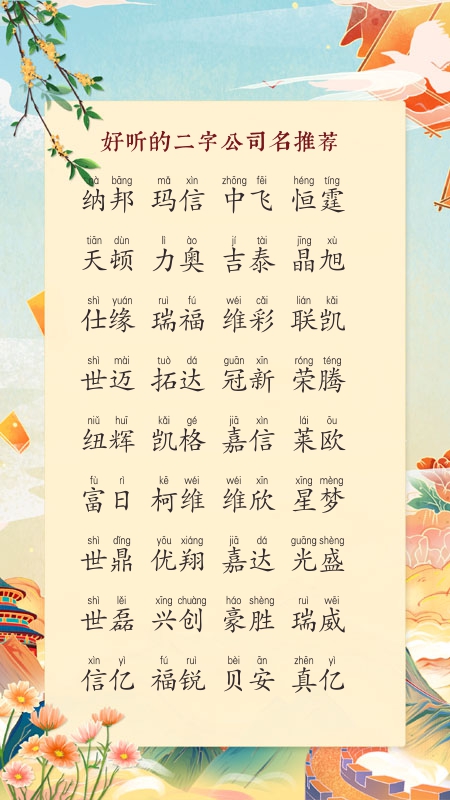 好听的二字公司名推荐
nà bāng mǎ xìn zhōng fēi héng tíng
纳邦 玛信 中飞 恒霆
tiān dùn lì ào jí tài jīng xù
天顿 力奥 吉泰 晶旭
shì yuán ruì fú wéi cǎi lián kǎi
仕缘 瑞福 维彩 联凯
shì mài tuò dá guān xīn róng téng
世迈 拓达 冠新 荣腾
niǔ huī kǎi gé jiā xìn lái ōu
纽辉 凯格 嘉信 莱欧
fù rì kē wéi wéi xīn xīng mèng
富日 柯维 维欣 星梦
shì dǐng yōu xiáng jiā dá guāng shèng
世鼎 优翔 嘉达 光盛
shì lěi xīng chuàng háo shèng ruì wēi
世磊 兴创 豪胜 瑞威
xìn yì fú ruì bèi ān zhēn yì
信亿 福锐 贝安 真亿